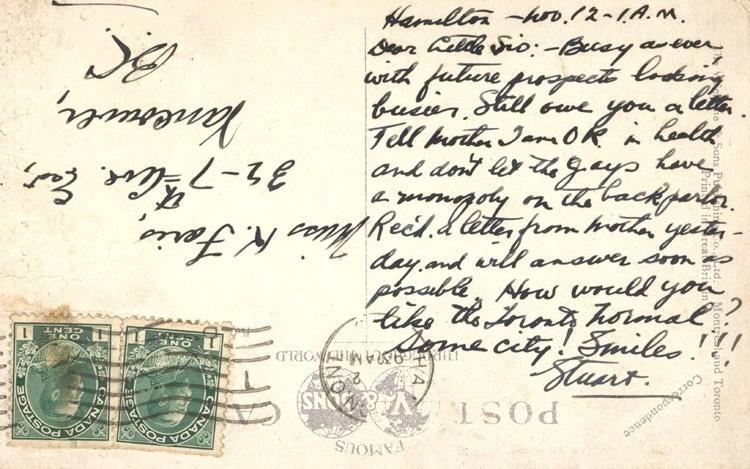 Hamilton - Nov. 12 - 1 A.M.
Dear Little Sis: - Busy as ever
with future prospects looking
busier. Still owe you a letter.
Tell Mother I am OK in health
and don't let the Gays have
a monopoly on the back parlor.
Rec'd. a letter from Mother yester-
day and will answer soon as
possible. How would you
like the Toronto Normal?
Some city! Smiles!!!
Stuart.
Miss K. Faris,
32 - 7th Ave. East,
Vancouver,
B.C.
POST CA
Correspondence
FAMOUS
THROUGHOUT THE WORLD
Sons Co. Ltd. Montreal and Toronto
Printed in Great Britain
HA ON
930AM
CANADA POSTAGE
1 ONE CENT 1
CANADA POSTAGE
1 ONE CENT 1